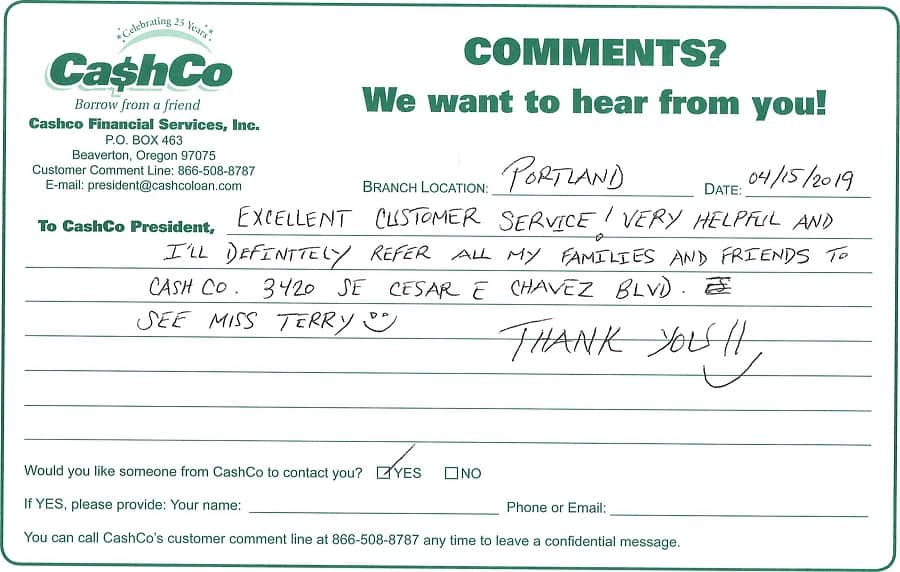 *Celebrating 25 Years*
Ca$hCo
Borrow from a friend
Cashco Financial Services, Inc.
P.O. BOX 463
Beaverton, Oregon 97075
Customer Comment Line: 866-508-8787
E-mail: president@cashcoloan.com
COMMENTS?
We want to hear from you!
BRANCH LOCATION: PORTLAND DATE: 04/15/2019
To CashCo President, EXCELLENT CUSTOMER SERVICE! VERY HELPFUL AND
I'LL DEFINITELY REFER ALL MY FAMILIES AND FRIENDS TO
CASH CO. 3420 SE CESAR E CHAVEZ BLVD.
SEE MISS TERRY
THANK YOU!!
Would you like someone from CashCo to contact you? YES NO
If YES, please provide: Your name: Phone or Email:
You can call CashCo's customer comment line at 866-508-8787 any time to leave a confidential message.